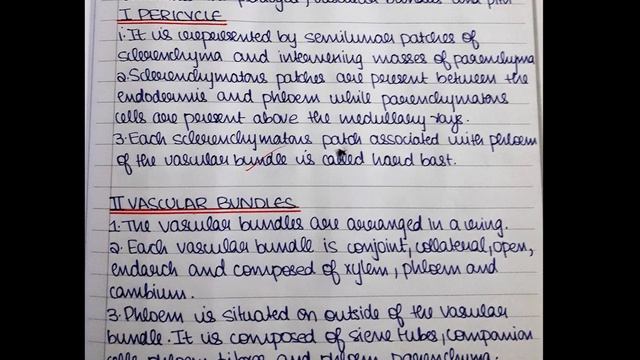 I PERICYCLE
1. It is represented by semilunar patches of
sclerenchyma and intervening masses of parenchyma
2. Sclerenchymatous patches are present between the
endodermis and phloem while parenchymatous
cells are present above the medullary rays.
3. Each sclerenchymatous patch associated with phloem
of the vascular bundle is called hard bast.
II VASCULAR BUNDLES
1. The vascular bundles are arranged in a ring.
2. Each vascular bundle is conjoint, collateral, open,
endarch and composed of xylem, phloem and
cambium.
3. Phloem is situated on outside of the vascular
bundle. It is composed of sieve tubes, companion
cells phloem fibres and phloem parenchyma.